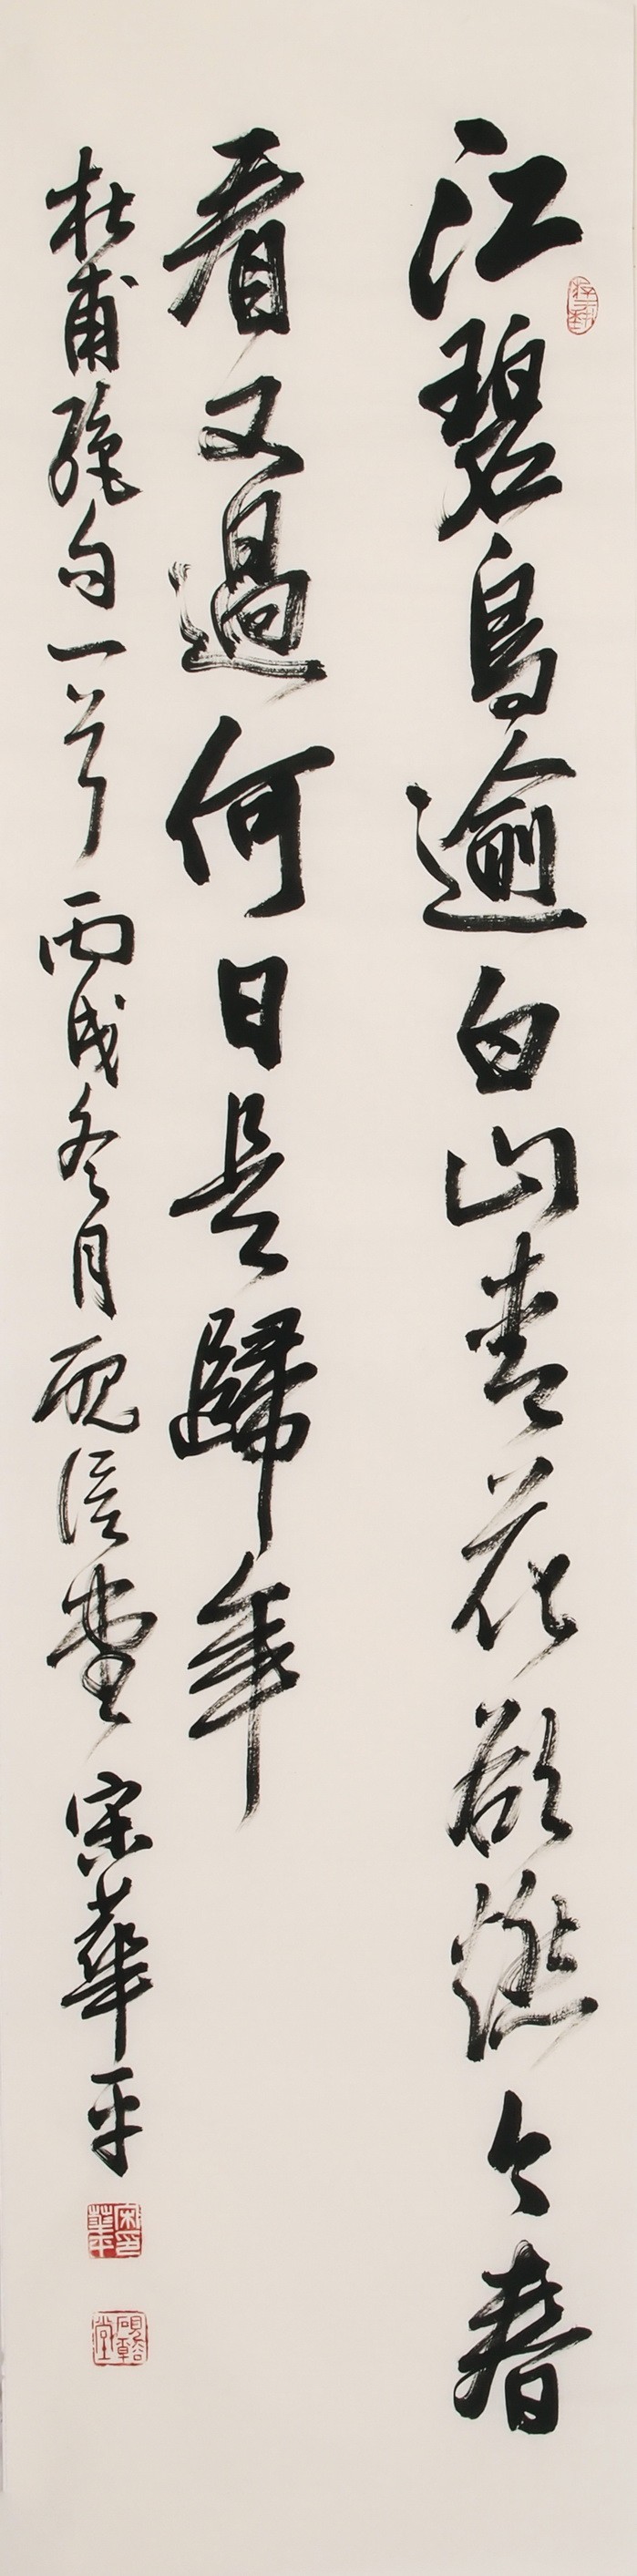 江碧鳥逾白山青花欲燃今春
看又過何日是歸年
杜甫絕句一首 丙戌冬月 堂 宋華平